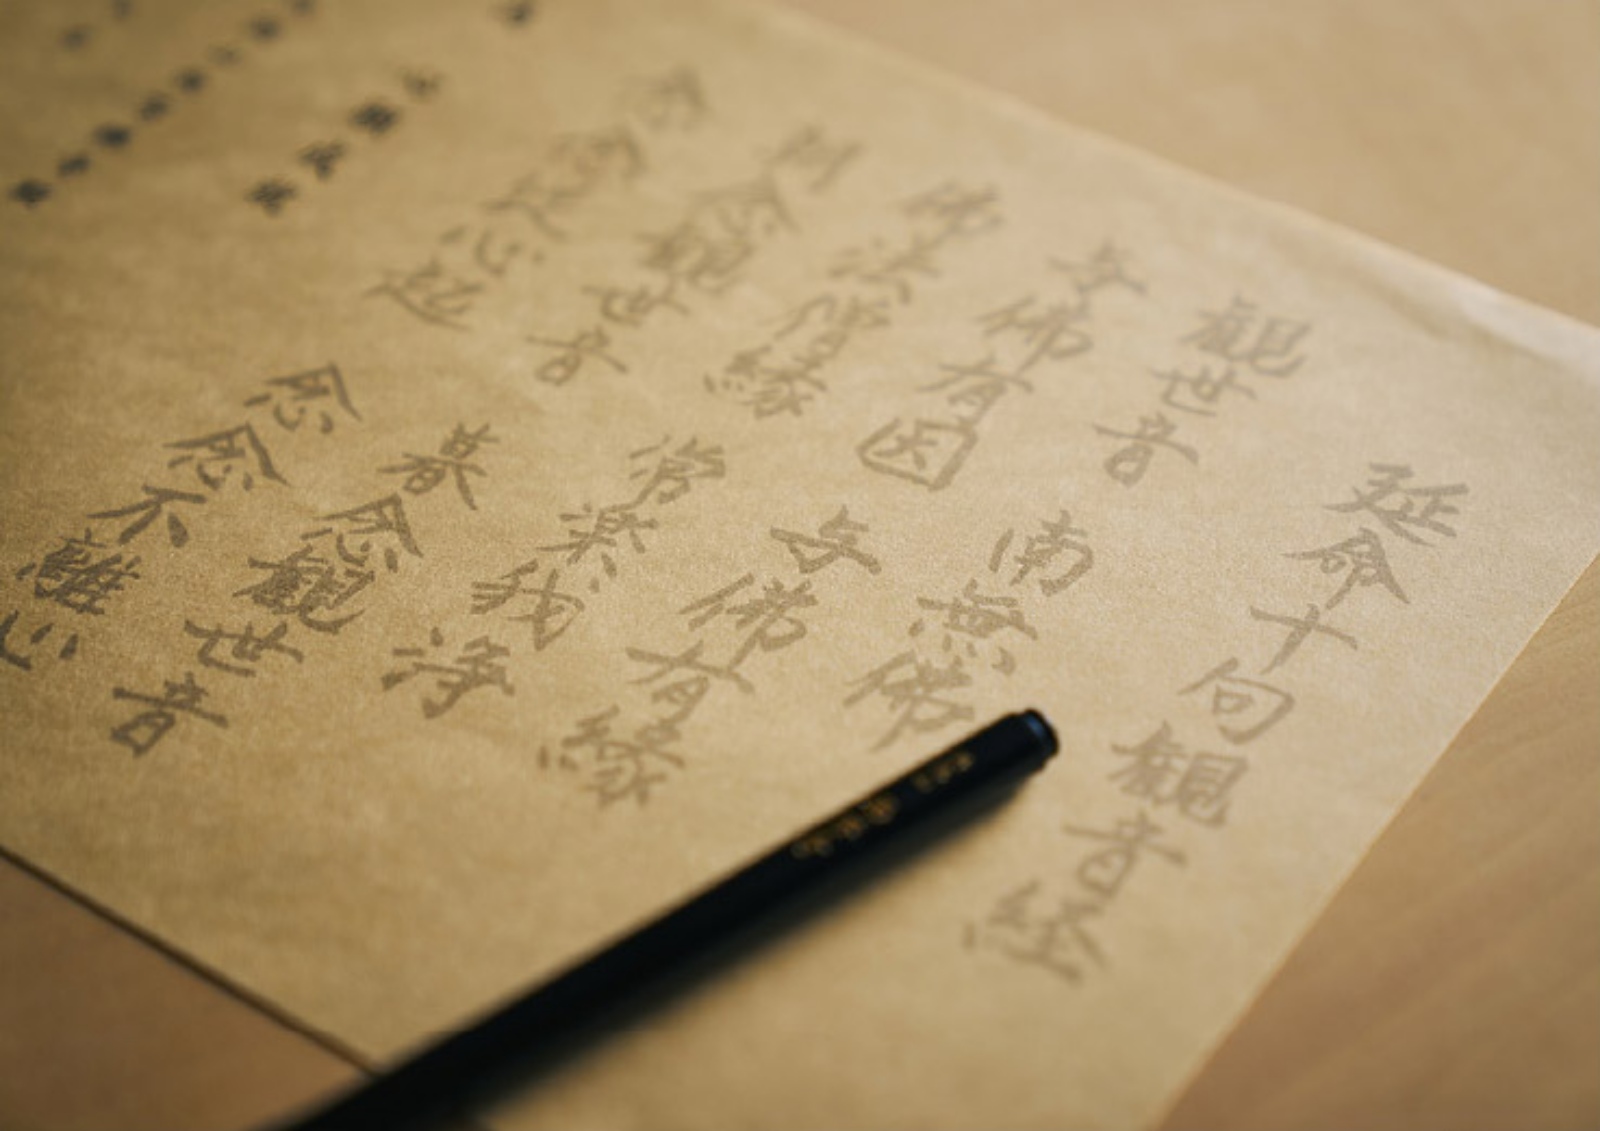 延命十句観音経
観世音 南無佛
与佛有因 与佛有縁
佛法僧縁 常楽我浄
朝念観世音 暮念観世音
念念従心起 念念不離心